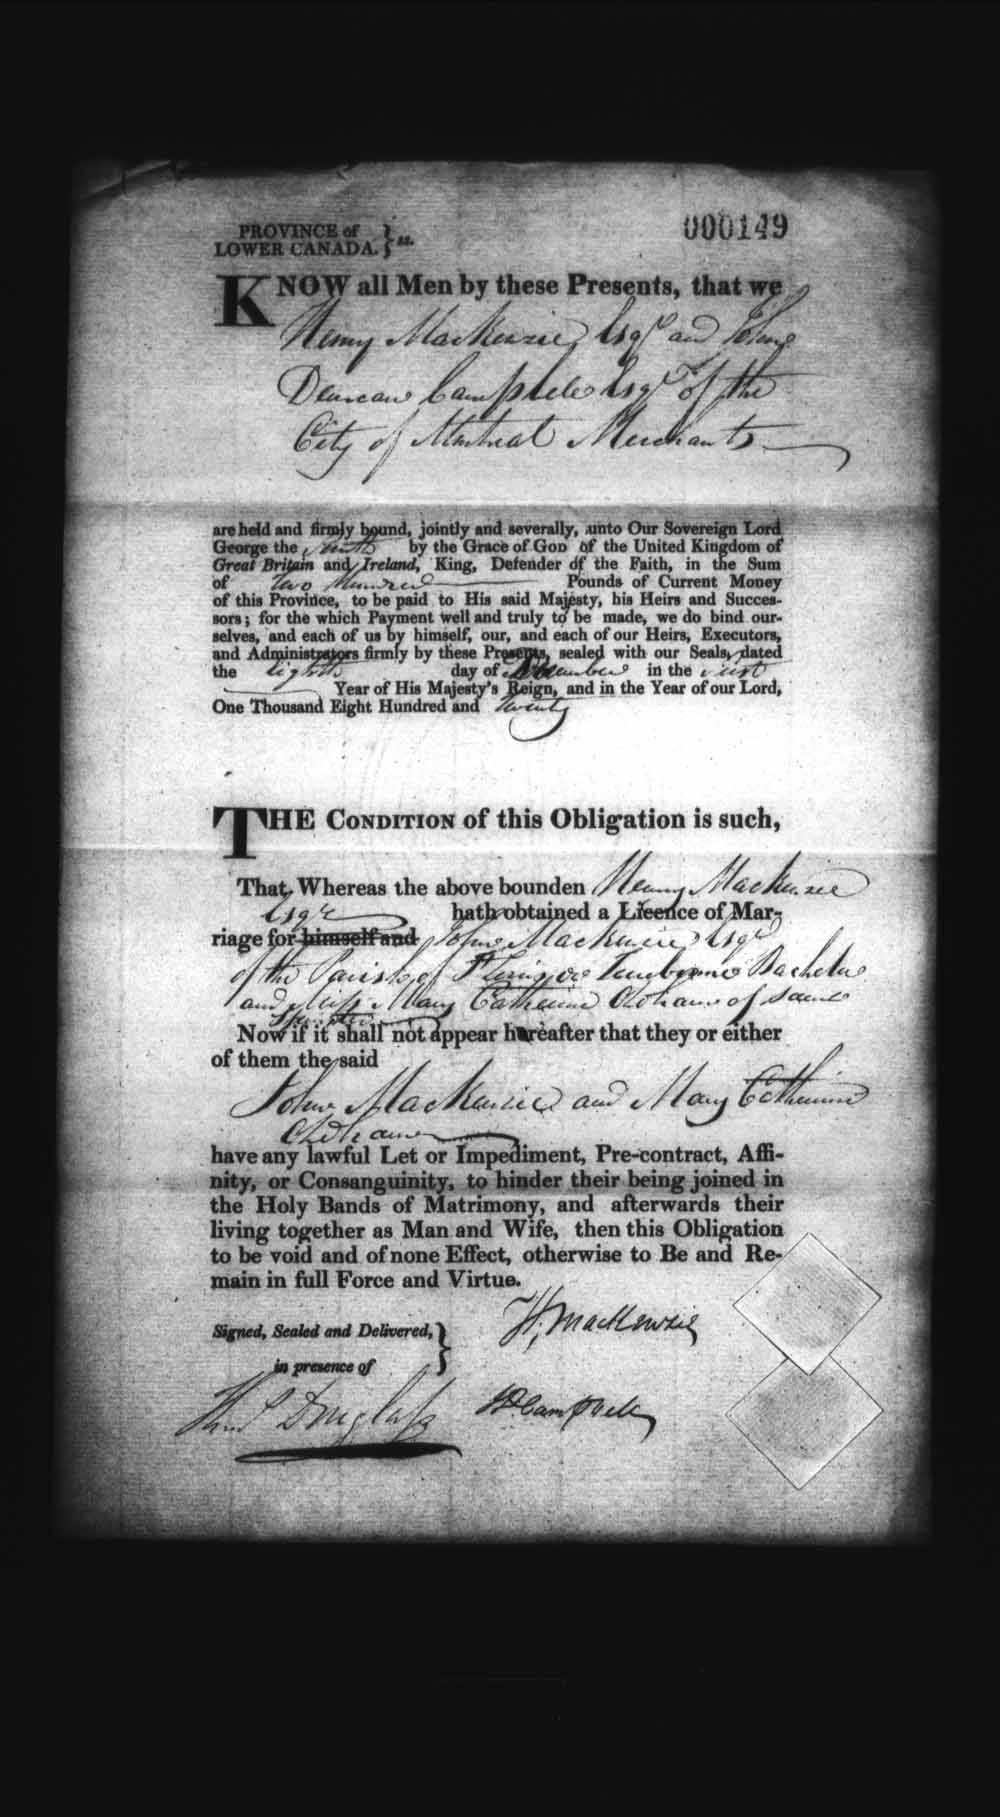 PROVINCE of
LOWER CANADA. } ss.
000149
KNOW all Men by these Presents, that we
Henry MacKenzie Esqr and John
Duncan Campbell Esqr of the
City of Montreal Merchants
are held and firmly bound, jointly and severally, unto Our Sovereign Lord
George the by the Grace of GOD of the United Kingdom of
Great Britain and Ireland, King, Defender of the Faith, in the Sum
of Two Hundred Pounds of Current Money
of this Province, to be paid to His said Majesty, his Heirs and Succes-
sors; for the which Payment well and truly to be made, we do bind our-
selves, and each of us by himself, our, and each of our Heirs, Executors,
and Administrators firmly by these Presents, sealed with our Seals, dated
the eighth day of in the first
Year of His Majesty's Reign, and in the Year of our Lord,
One Thousand Eight Hundred and twenty
THE CONDITION of this Obligation is such,
That Whereas the above bounden Henry MacKenzie
Esqre hath obtained a Licence of Mar-
riage for himself and John MacKenzie Esqr
of the Parish of Terrebonne Bachelor
and Miss Mary Catherine of same
Spinster
Now if it shall not appear hereafter that they or either
of them the said
John MacKenzie and Mary Catherine
have any lawful Let or Impediment, Pre-contract, Affi-
nity, or Consanguinity, to hinder their being joined in
the Holy Bands of Matrimony, and afterwards their
living together as Man and Wife, then this Obligation
to be void and of none Effect, otherwise to Be and Re-
main in full Force and Virtue.
Signed, Sealed and Delivered, }
in presence of
H. MacKenzie
Douglass
JD Campbell